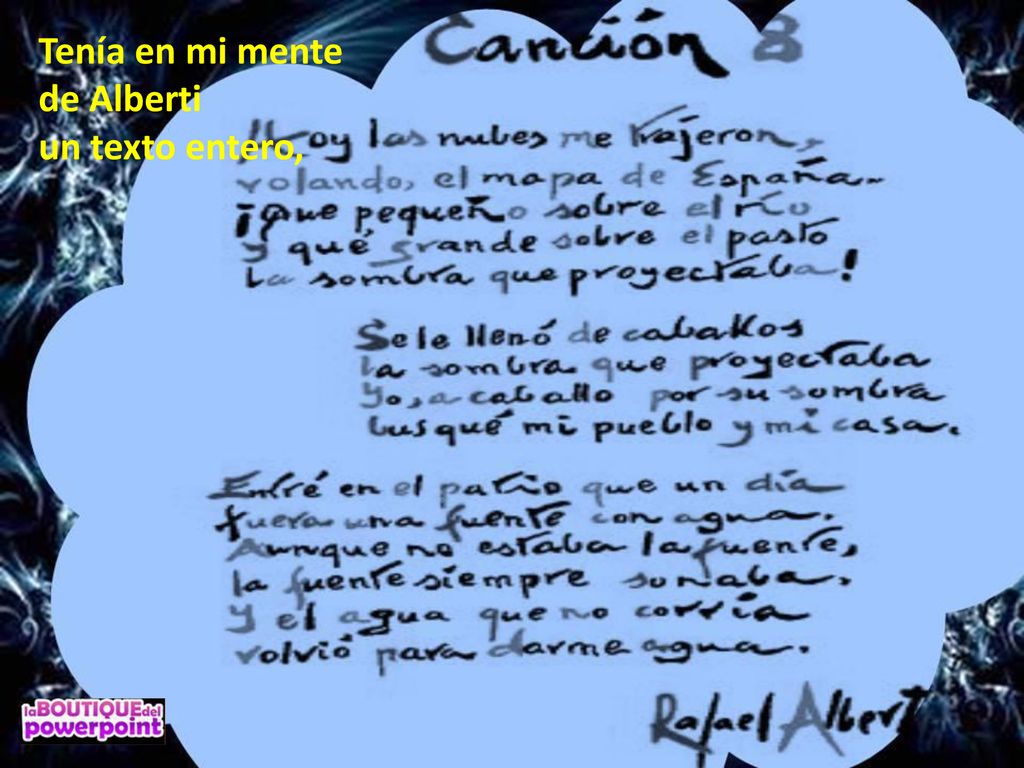 Tenía en mi mente
de Alberti
un texto entero,
Canción 8
Hoy las nubes me trajeron,
volando, el mapa de España.
¡Que pequeño sobre el río
y qué grande sobre el pasto
la sombra que proyectaba!
Se le llenó de caballos
la sombra que proyectaba
Yo, a caballo por su sombra
busqué mi pueblo y mi casa.
Entré en el patio que un día
fuera una fuente con agua.
Aunque no estaba la fuente,
la fuente siempre sonaba.
Y el agua que no corría
volvió para darme agua.
Rafael Albert
laBOUTIQUEdel
powerpoint